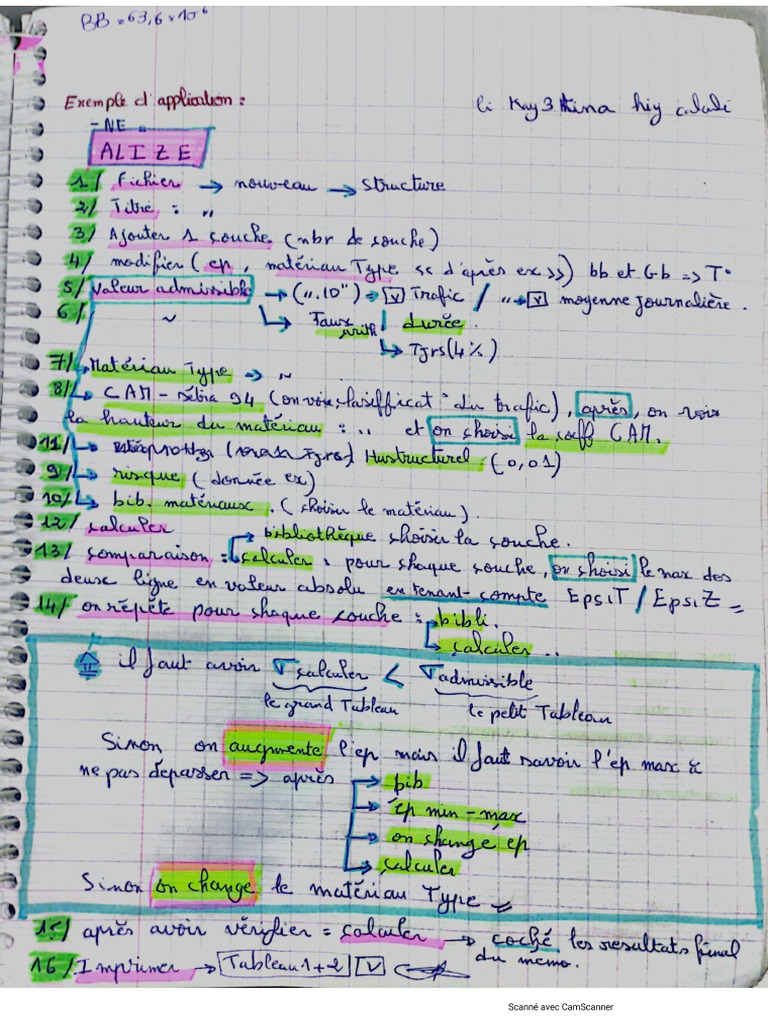 BB = 63,6 x 10⁶
Exemple d'application :
- NE =
ALIZE
1/ Fichier → nouveau → structure
2/ Titre : "
3/ Ajouter 1 couche (nbr de couche)
4/ modifier (ep, matériau Type << d'après ex >>) bb et Gb => T°
5/ Valeur admissible → (".10") → [v] Trafic / " → [v] moyenne journalière.
6/ ~ ↳ Taux arith ↓ durée.
↳ Tjrs (4%)
7/ Matériau Type → ~
8/ → CAM - Sétra 94 (on voie, la du trafic), après, on vois
la hauteur du matériau : .. et on choisi la coeff CAM.
11/ → Hustructurel (0,01)
9/ → risque (donnée ex)
10/ → bib. matériaux. (choisir le matériau).
12/ calculer
→ bibliothèque choisir la couche.
13/ comparaison : calculer : pour chaque couche, on choisi le max des
deuxe ligne en valeur absolu en tenant-compte EpsiT / EpsiZ =
14/ on répète pour chaque couche : → bibli.
→ calculer ..
il faut avoir σ calculer < σ admissible
le grand Tableau le petit Tableau
Sinon on augmente l'ep mais il faut savoir l'ep max &
ne pas dépasser => après → bib
→ ép min - max
→ on change ep
→ calculer
Sinon on change le matériau Type =
15/ après avoir vérifier = calculer → coché les résultats final
du mémo.
16/ Imprimer → Tableau 1+2 [v]
Scanné avec CamScanner